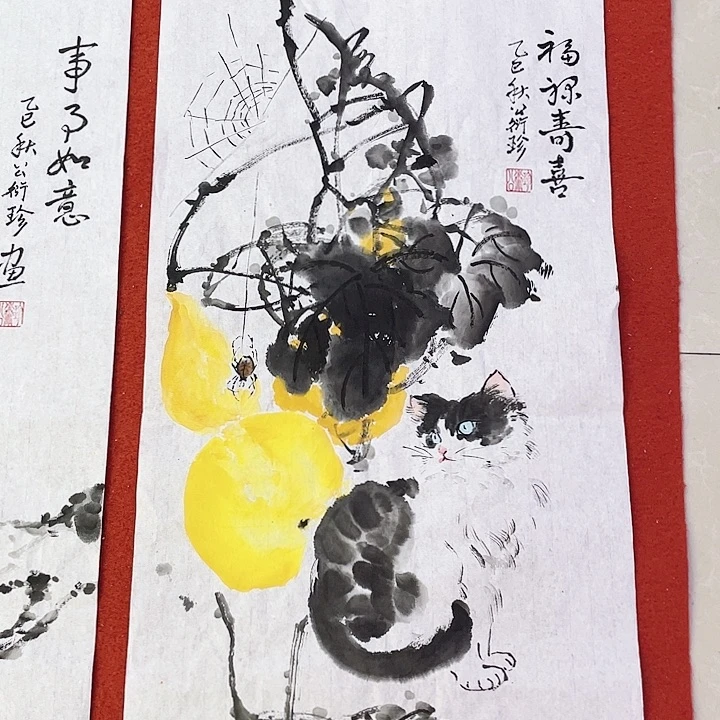 福禄寿喜
乙巳秋公衍珍
事事如意
乙巳秋公衍珍画